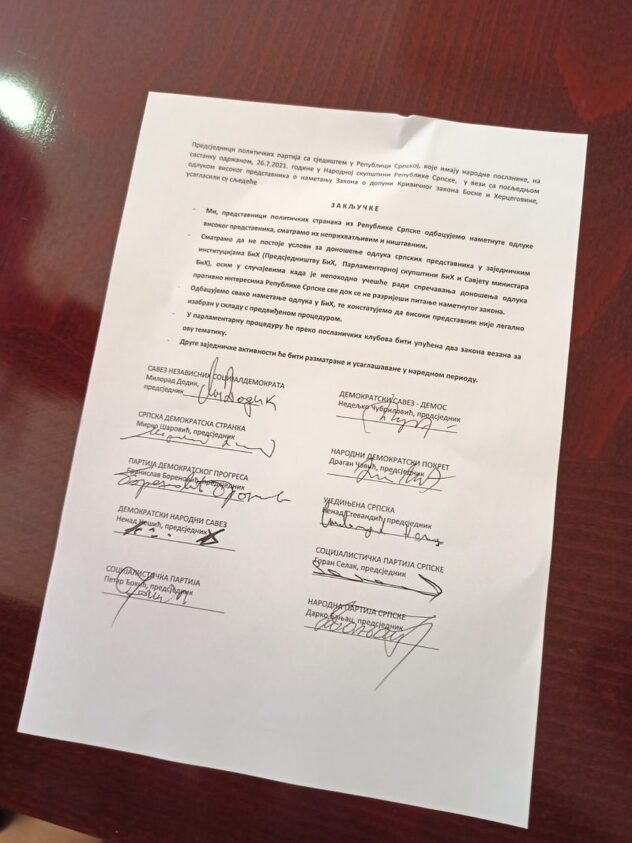 Предсједници политичких партија са сједиштем у Републици Српској, које имају народне посланике, на
састанку одржаном, 26.7.2021. године у Народној скупштини Републике Српске, у вези са посљедњом
одлуком високог представника о наметању Закона о допуни Кривичног закона Босне и Херцеговине,
усагласили су сљедеће
ЗАКЉУЧКЕ
- Ми, представници политичких странака из Републике Српске одбацујемо наметнуте одлуке
високог представника, сматрамо их неприхватљивим и ништавним.
- Сматрамо да не постоје услови за доношење одлука српских представника у заједничким
институцијама БиХ (Предсједништву БиХ, Парламентарној скупштини БиХ и Савјету министара
БиХ), осим у случајевима када је неопходно учешће ради спречавања доношења одлука
противно интересима Републике Српске све док се не разријеши питање наметнутог закона.
- Одбацујемо свако наметање одлука у БиХ, те констатујемо да високи представник није легално
изабран у складу с предвиђеном процедуром.
- У парламентарну процедуру ће преко посланичких клубова бити упућена два закона везана за
ову тематику.
- Друге заједничке активности ће бити разматране и усаглашаване у наредном периоду.
САВЕЗ НЕЗАВИСНИХ СОЦИЈАЛДЕМОКРАТА
Милорад Додик,
предсједник
СРПСКА ДЕМОКРАТСКА СТРАНКА
Мирко Шаровић, предсједник
ПАРТИЈА ДЕМОКРАТСКОГ ПРОГРЕСА
Бранислав Бореновић, предсједник
ДЕМОКРАТСКИ НАРОДНИ САВЕЗ
Ненад Нешић, предсједник
СОЦИЈАЛИСТИЧКА ПАРТИЈА
Петар Ђокић, предсједник
ДЕМОКРАТСКИ САВЕЗ - ДЕМОС
Недељко Чубриловић, предсједник
НАРОДНИ ДЕМОКРАТСКИ ПОКРЕТ
Драган Чавић, предсједник
УЈЕДИЊЕНА СРПСКА
Ненад Стевандић, предсједник
СОЦИЈАЛИСТИЧКА ПАРТИЈА СРПСКЕ
Горан Селак, предсједник
НАРОДНА ПАРТИЈА СРПСКЕ
Дарко Бањац, предсједник